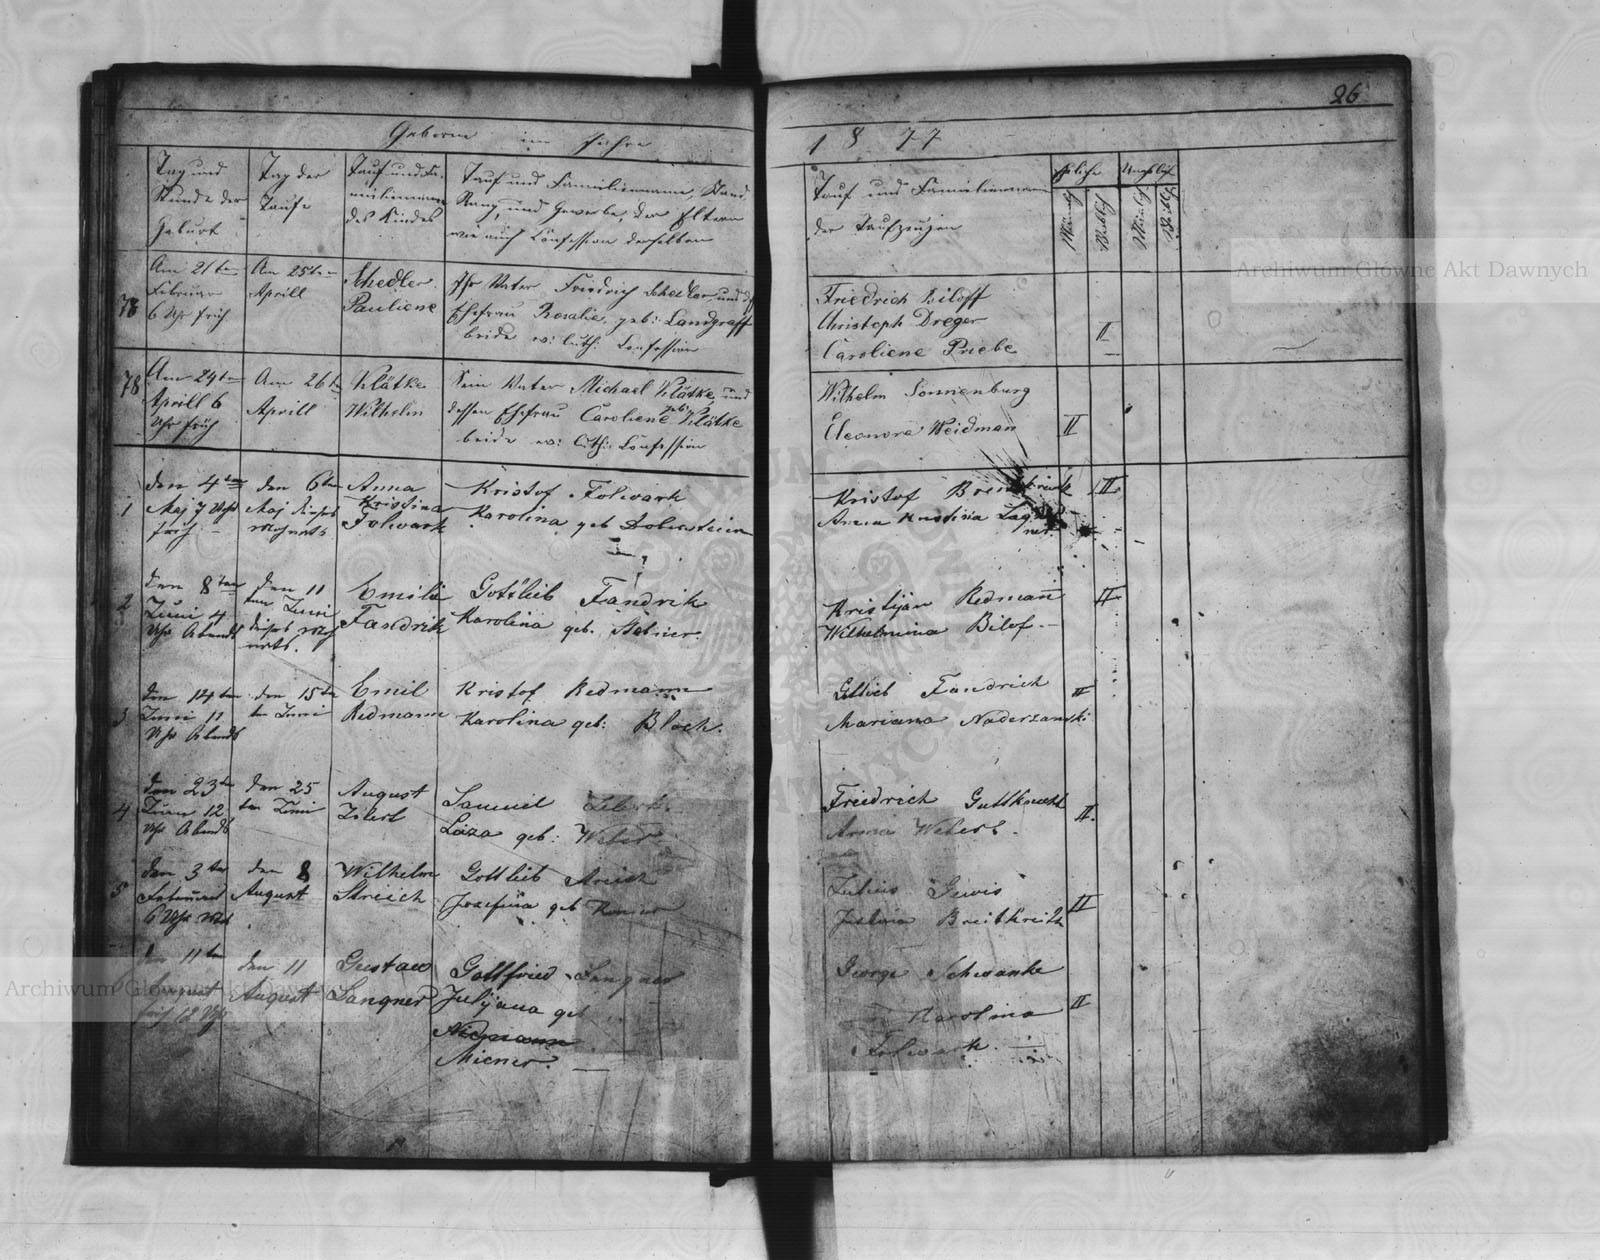 26
Geboren im Jahre
1 8 7 7
Tag und
Stunde der
Geburt
Tag der
Taufe
Tauf und Fa-
milienname
des Kindes
Tauf und Familienname, Stand
Rang, und Gewerbe, der Eltern
wie auch Confession derselben
Tauf und Familienname
der Taufzeugen
Eheliche
Unehlich
Männlich
Weiblich
Männlich
Weiblich
Am 21ten
Februar
6 Uhr früh
Am 25ten
Aprill
Schedler
Pauliene
Ihr Vater Friedrich Schedler und d
Ehefrau Rosalie, geb: Landgraff
beide ev: luth: Confession
Friedrich Ziloff
Christoph Dreger
Caroliene Priebe
II
78
Am 24ten
Aprill 6
Uhr früh
Am 26ten
Aprill
Klätke
Wilhelm
Sein Vater Michael Klätke, und
dessen Ehefrau Caroliene geb: Klätke
beide ev: luth: Confession
Wilhelm Sonnenburg
Eleonora Weidman
II
1
den 4ten
Maj 7 Uhr
früh
den 6ten
Maj dieses
Mohnats
Anna
Kristina
Folwark
Kristof Folwark
Karolina geb
Kristof
Anna Kristina
II
2
den 8ten
Juni 4
Uhr Abends
den 11
ten Juni
dieses Moh
nats.
Emilie
Fandrik
Gottlieb Fandrik
Karolina geb.
Kristijan Redmann
Wilhelmina Bilof
II
3
den 14ten
Juni 11
Uhr Abends
den 15ten
Juni
Emil
Redmann
Kristof Redmann
Karolina geb: Bloch.
Gottlieb Fandrich
Mariana Naderzanski
II
4
den 23ten
12
Uhr Abends
den 25
ten Juni
August
Samuel
geb: Weber
Friedrich Guttknecht
Anna
II
5
den 3ten
Februar
6 Uhr
den 8
August
Wilhelm
Streich
Gottlieb Streich
Josefina geb
Julius
Justina Breitkreitz
II
den 11ten
August
früh 12 Uhr
den 11
August
Gustaw
Langner
Gottfried Langner
Julijana geb
Miener.
George Schwanke
Karolina
Folwark.
II
Archiwum Główne Akt Dawnych
Archiwum Główne Akt Dawnych